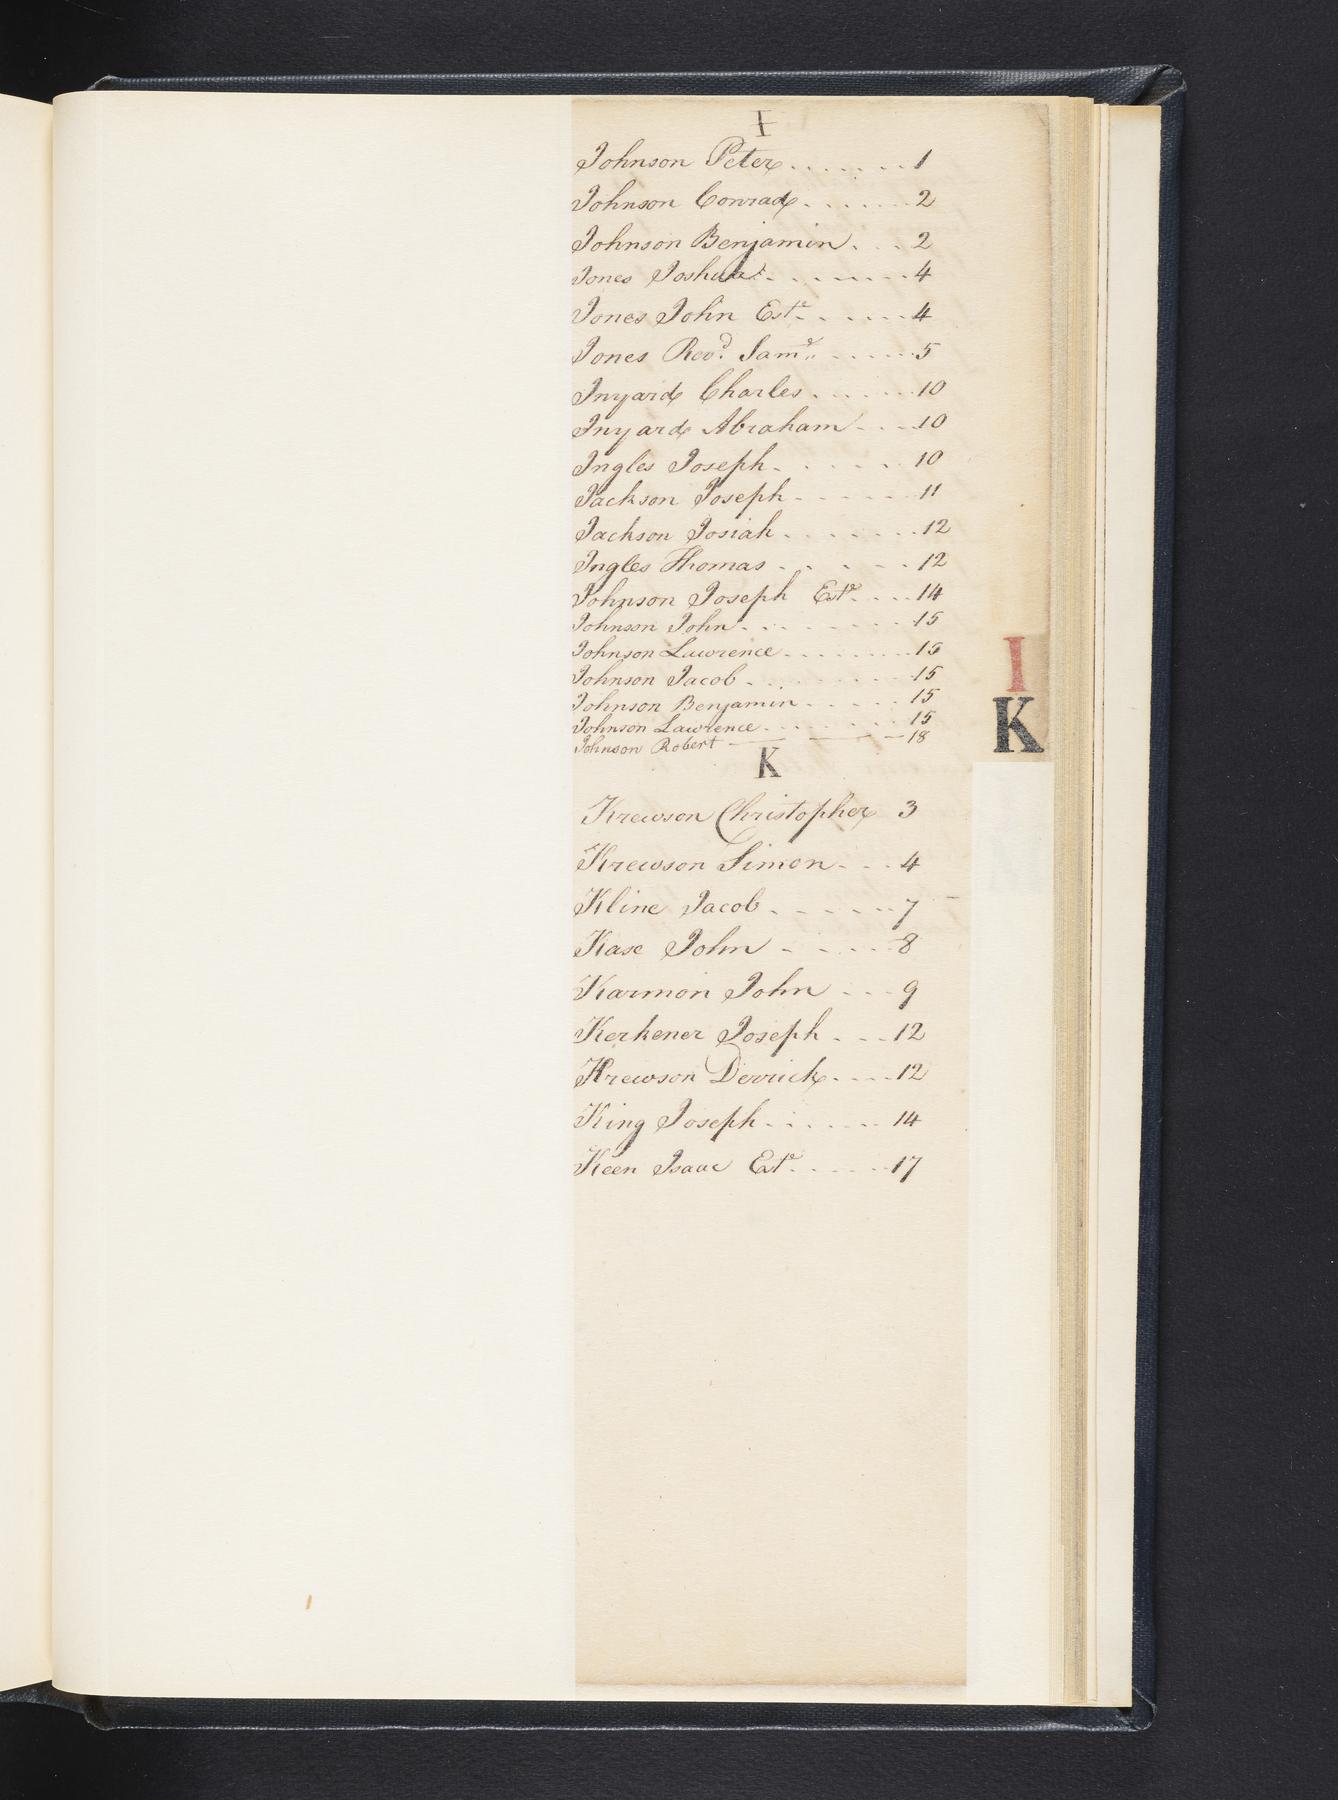 I
Johnson Peter . . . . . . . 1
Johnson Conrad . . . . . . . 2
Johnson Benjamin . . . 2
Jones Joshua . . . . . . . 4
Jones John Este . . . . . . 4
Jones Revd. Saml. . . . . . 5
Inyard Charles . . . . . . 10
Inyard Abraham . . . . 10
Ingles Joseph . . . . . 10
Jackson Joseph - - - - - - 11
Jackson Josiah . . . . . . . . 12
Ingles Thomas . . . . . 12
Johnson Joseph Este . . . 14
Johnson John . . . . . . . 15
Johnson Lawrence . . . . . . . . 15
Johnson Jacob . . . . . . . . 15
Johnson Benjamin . . . . . 15
Johnson Lawrence . . . . . . 15
Johnson Robert - - - 18
I
K
K
Krewson Christopher 3
Krewson Simon . . . 4
Kline Jacob . . . . . . 7
Kase John - . . . . 8
Karmon John . . . 9
Kerkener Joseph . . . . 12
Krewson Derrick . . . . 12
King Joseph . . . . . . . 14
Keen Isaac Este . . . . . . 17